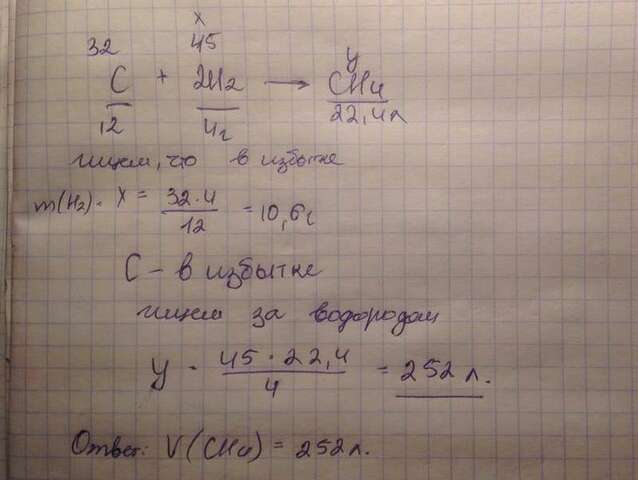 x
32 45 y
C + 2H2 → CH4
12 4г 22,4л
ищем, что в избытке
m(H2). X = 32·4/12 = 10,6г
C – в избытке
ищем за водородом
y - 45·22,4/4 = 252 л.
Ответ: V(CH4) = 252л.